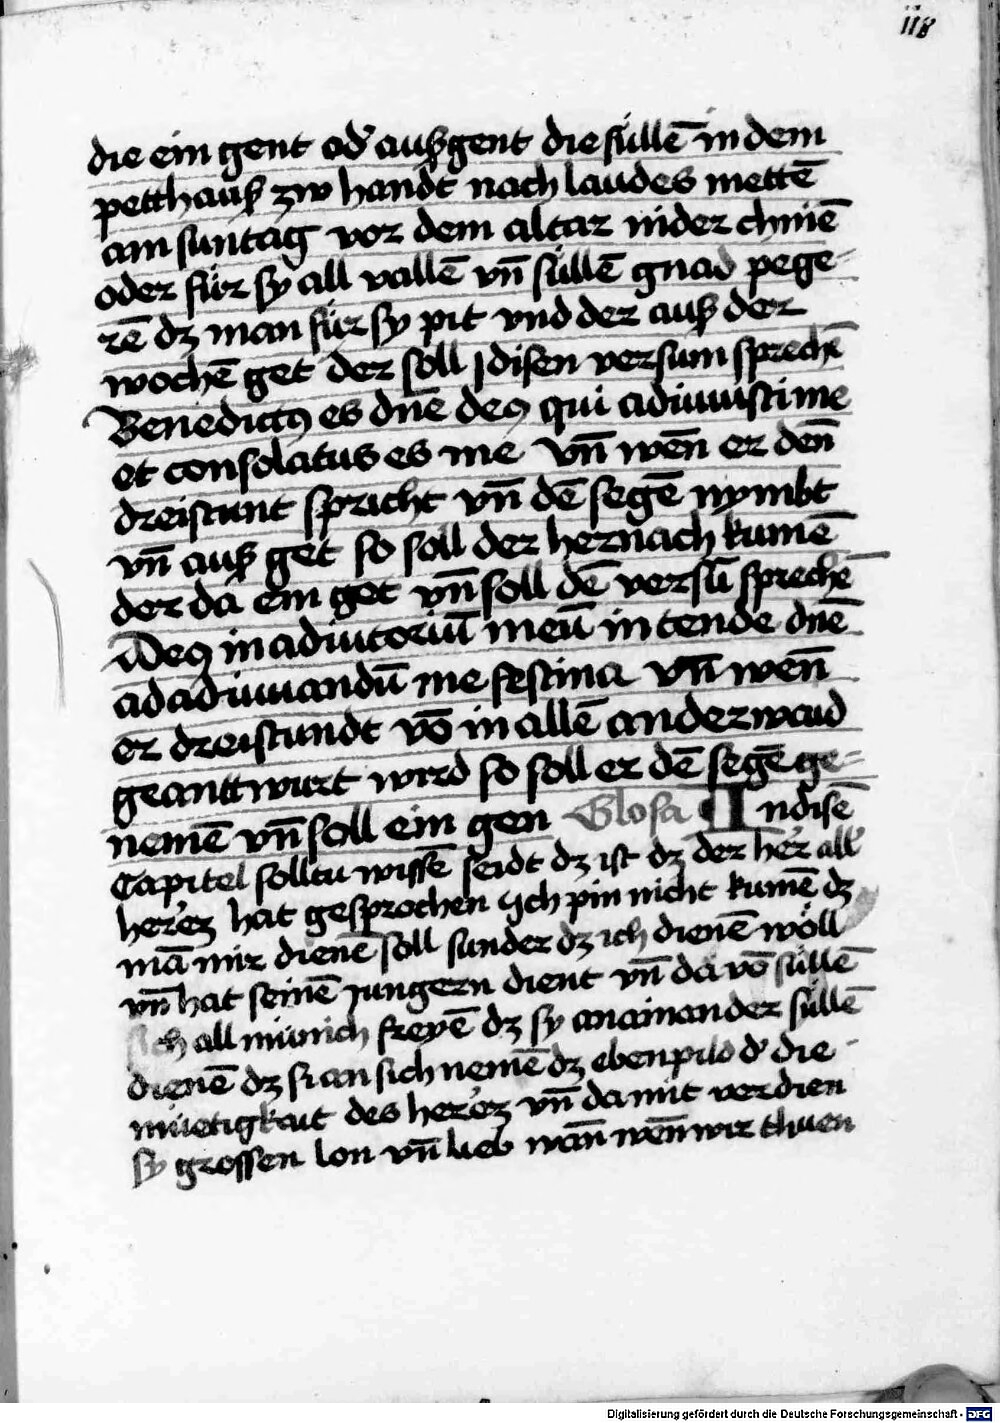 118
die ein gent od' außgent die süllē in dem
petthauß zw handt nach laudes mettē
am suntag vor dem altar nider chniē
oder für sy all vallē vn̄ süllē gnad pege-
rē dz man für sy pit vnd der auß der
wochē get der soll disen versum sprechē
Benedictꝰ es dn̄e deꝰ qui adiuuisti me
et consolatus es me vn̄ wen̄ er den̄
dreistunt spricht vn̄ dē segē nymbt
vn̄ auß get so soll der hernach kumē
der da ein get vn̄ soll dē versū sprechē
Deꝰ in adiutoriū meū intende dn̄e
ad adiuuandū me festina vn̄ wen̄
er dreistundt vō in allē anderwaid
geanttwurt wird so soll er dē segē ge-
nemē vn̄ soll ein gen Glosa In disē
Capitel solltu wissē seidt dz ist dz der her̄ all'
her'ez hat gesprochen Ich pin nicht kumē dz
mā mir dienē soll sunder dz ich dienē wöll
vn̄ hat seinē jungern dient vn̄ da vō süllē
sich all münich freyē dz sy anainander süllē
dienē dz si an sich nemē dz ebenpild d' die
müetigkait des her'ez vn̄ da mit verdien
sy grossen lon vn̄ lieb wan̄ wen̄ wir thuen
Digitalisierung gefördert durch die Deutsche Forschungsgemeinschaft - DFG